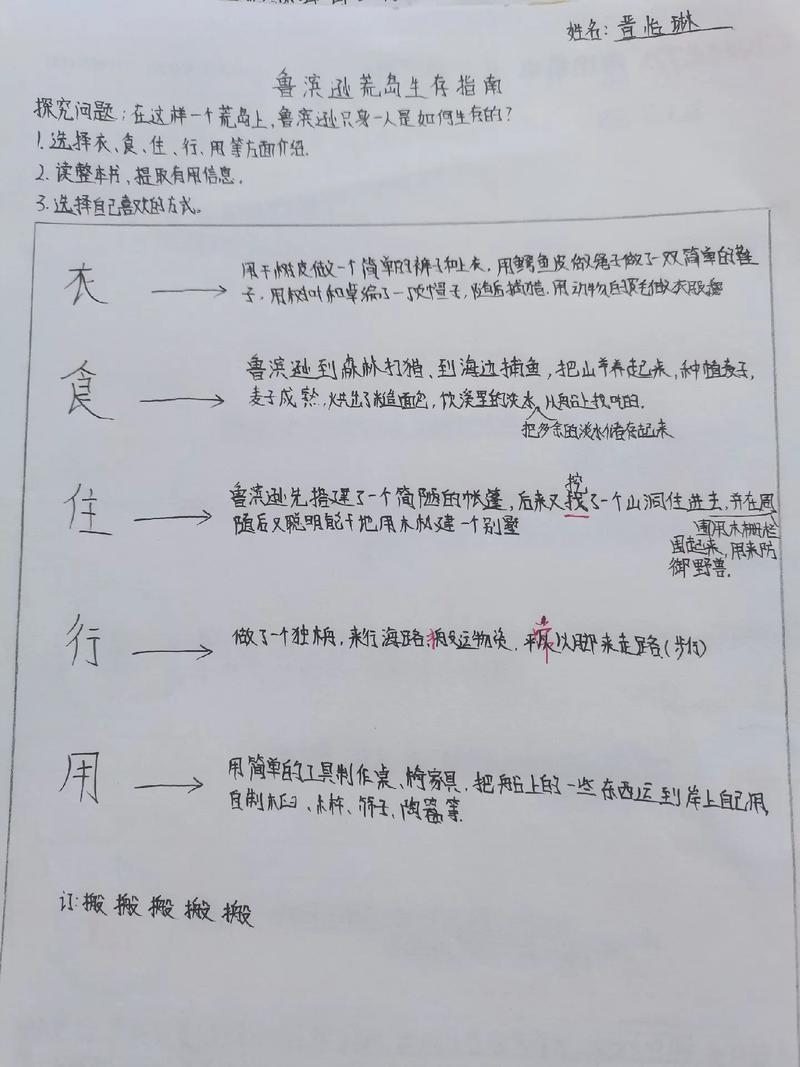 姓名:晋怡琳
鲁滨逊荒岛生存指南
探究问题:在这样一个荒岛上,鲁滨逊只身一人是如何生存的?
1.选择衣、食、住、行、用等方面介绍.
2.读整本书,提取有用信息.
3.选择自己喜欢的方式。
衣
用干树皮做一个简单的裤子和上衣,用鳄鱼皮做绳子做了一双简单的鞋
子,用树叶和草编了一顶帽子,随后捕猎.用动物的皮毛做衣服
食
鲁滨逊到森林打猎、到海边捕鱼,把山羊养起来,种植麦子,
麦子成熟,烘出了粗糙面包,饮溪里的淡水,从船上找吃的.
把多余的淡水储存起来
住
鲁滨逊先搭建了一个简陋的帐篷,后来又找了一个山洞住进去,并在周
挖
随后又聪明能干地用木材建一个别墅
围用木栅栏
围起来,用来防
御野兽.
行
做了一个独木舟,来行海路搬运物资,平常以用脚来走路.(步行)
用
用简单的工具制作桌、椅家具,把船上的一些东西运到岸上自己用,
自制木臼、木杵、筛子、陶器等.
订:搬 搬 搬 搬 搬